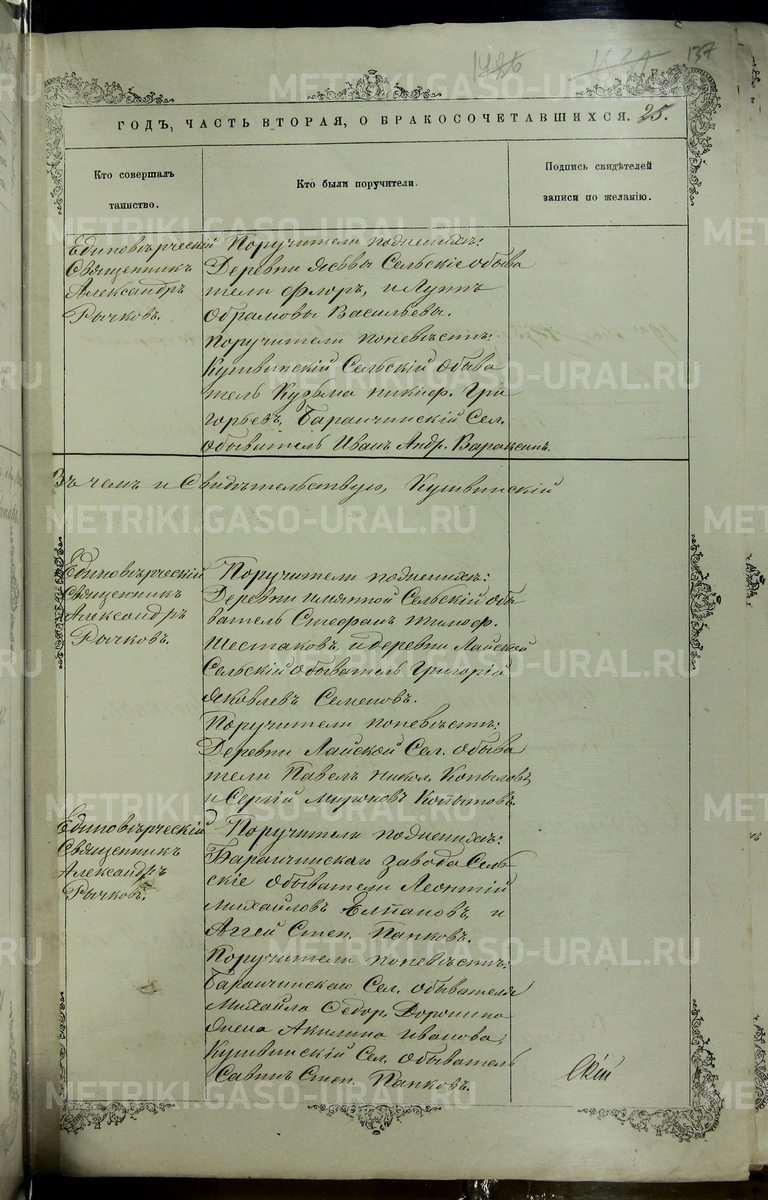 137
ГОДЪ, ЧАСТЬ ВТОРАЯ, О БРАКОСОЧЕТАВШИХСЯ. 25.
Кто совершалъ
таинство.
Кто были поручители.
Подпись свидѣтелей
записи по желанію.
Единовѣрческій
Священникъ
Александръ
Рычковъ.
Поручители поженихѣ:
Деревни Ясьвы Сельскіе обыва
тели Флоръ, и Луппъ
Обрамовы Васильевы.
Поручители поневѣстѣ:
Кушвинскій Сельскій обыва
тель Кузьма Никиф. Гри
горьевъ, Баранчинскій Сел.
обыватель Иванъ Андр. Вараксинъ.
Въ чемъ и Свидѣтельствую, Кушвинскій
Единовѣрческій
Священникъ
Александръ
Рычковъ.
Поручители поженихѣ:
Деревни Сельскій обы
ватель Стефанъ Тимоф.
Шестаковъ, и деревни Лайской
Сельскій обыватель Григорій
Яковлевъ Семеновъ.
Поручители поневѣстѣ:
Деревни Лайской Сел. обыва
тели Павелъ Никол. Копыловъ,
и Сергій Мироновъ Копытовъ.
Единовѣрческій
Священникъ
Александръ
Рычковъ.
Поручители поженихѣ:
Баранчинскаго завода Сель
скіе обыватели Леонтій
Михайловъ Елпановъ, и
Аггей Степ. Панковъ.
Поручители поневѣстѣ:
Баранчинскаго Сел. обывателя
Михайла Федор. Доронина
жена Акилина Иванова,
Кушвинскій Сел. обыватель
Савинъ Степ. Панковъ.
скій
METRIKI.GASO-URAL.RU